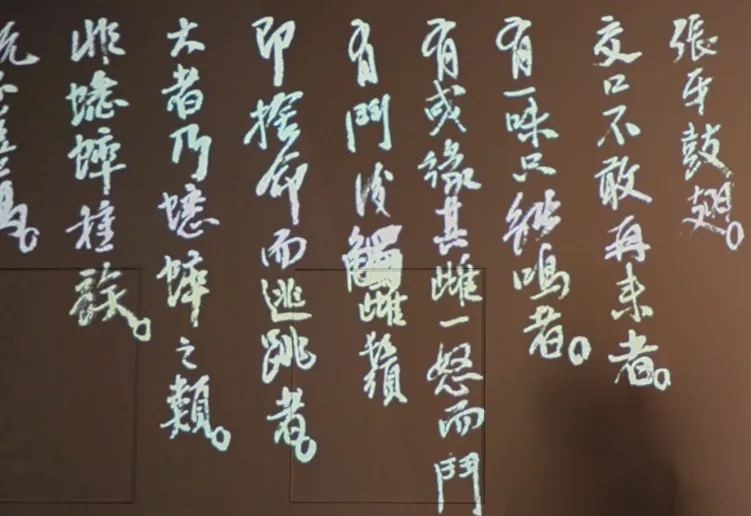 張牙鼓翅。
交口不敢再來者。
有一味只能鳴者。
有或緣其雌一怒而鬥
有鬥後觸雌鬚
即捨命而逃跳者。
大者乃蟋蟀之類。
非蟋蟀種族。